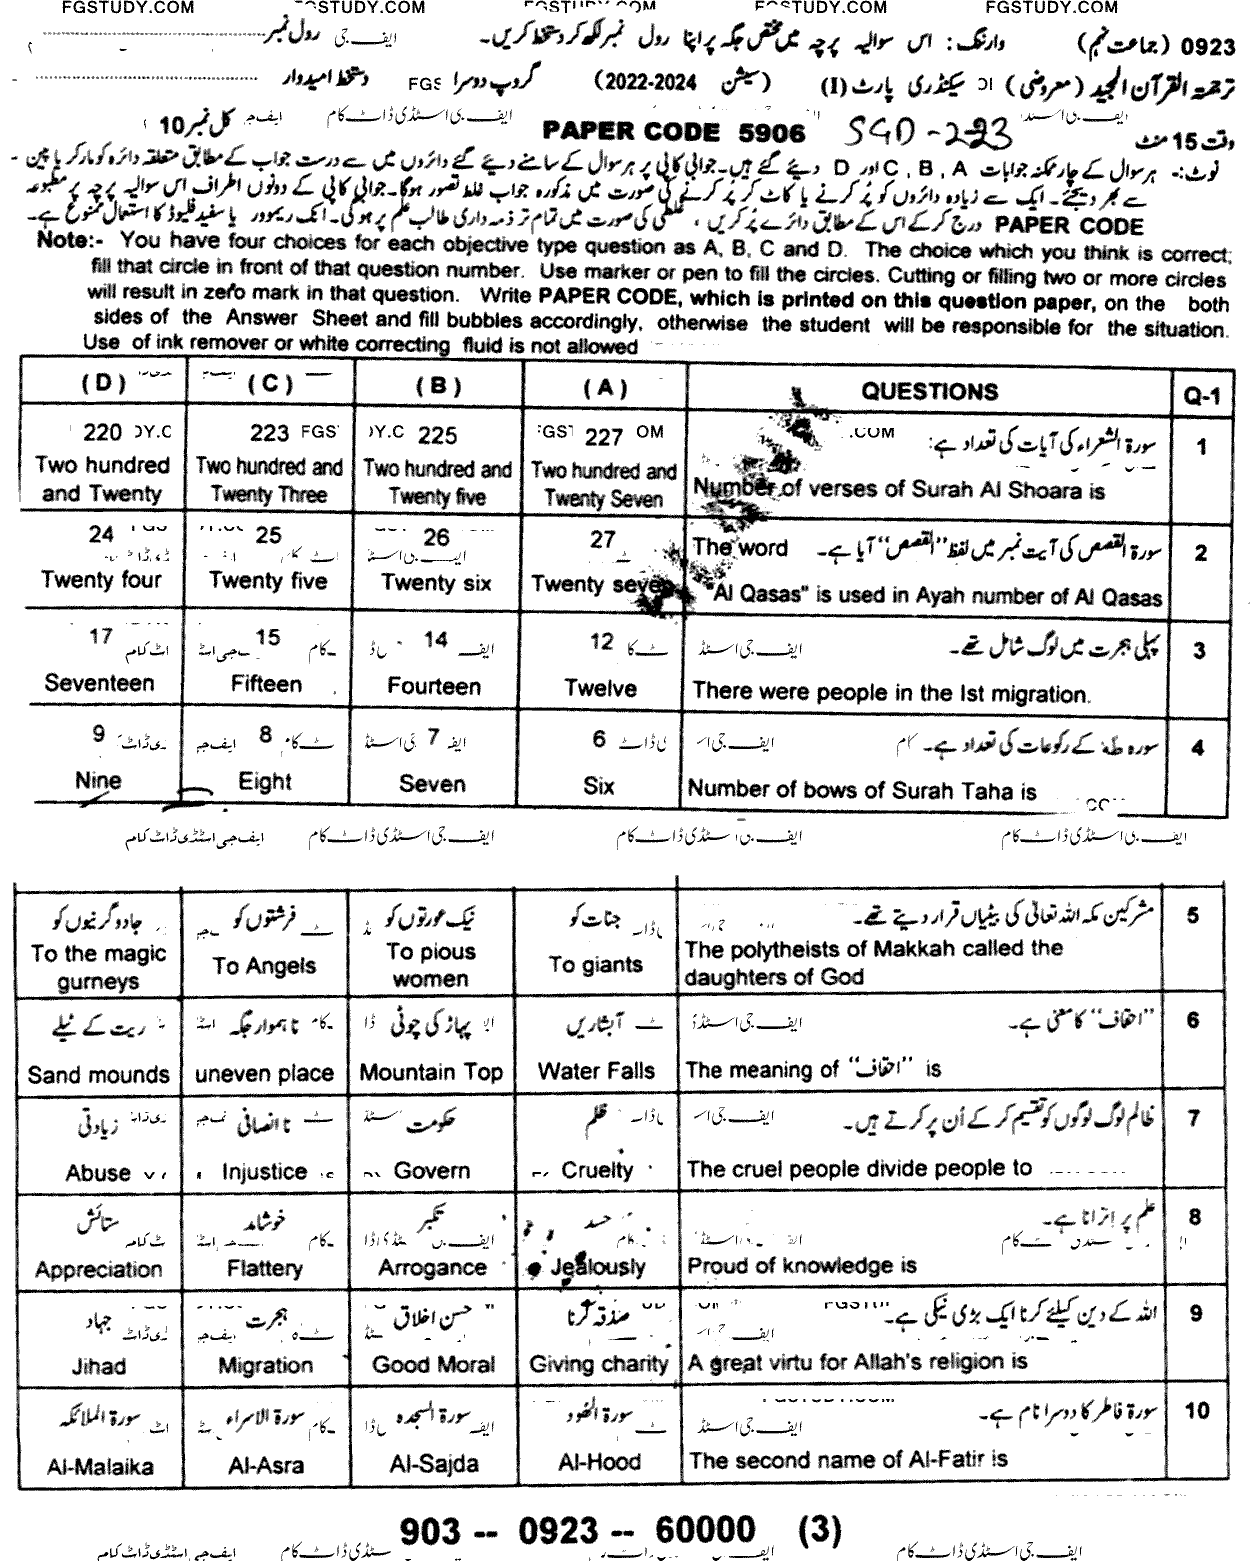 FGSTUDY.COM FGSTUDY.COM FGSTUDY.COM FGSTUDY.COM
0923 (جماعت نہم) وارننگ: اس سوالیہ پرچہ میں مختص جگہ پر اپنا رول نمبر لکھ کر دستخط کریں۔ رول نمبر
ترجمۃ القرآن المجید (معروضی) سیکنڈری پارٹ (I) (سیشن 2022-2024) گروپ دوسرا دستخط امیدوار
وقت 15 منٹ SGD-223 PAPER CODE 5906 کل نمبر 10
نوٹ:- ہر سوال کے چار ممکنہ جوابات A ، B ، C اور D دیئے گئے ہیں۔ جوابی کاپی پر ہر سوال کے سامنے دیئے گئے دائروں میں سے درست جواب کے مطابق متعلقہ دائرہ کو مارکر یا پین
سے بھر دیجئے۔ ایک سے زیادہ دائروں کو پُر کرنے یا کاٹ کر پُر کرنے کی صورت میں مذکورہ جواب غلط تصور ہوگا۔ جوابی کاپی کے دونوں اطراف اس سوالیہ پرچہ پر مطبوعہ
PAPER CODE درج کر کے اس کے مطابق دائرے پُر کریں ، غلطی کی صورت میں تمام تر ذمہ داری طالب علم پر ہو گی۔ انک ریموور یا سفید فلیوڈ کا استعمال ممنوع ہے۔
Note:- You have four choices for each objective type question as A, B, C and D. The choice which you think is correct;
fill that circle in front of that question number. Use marker or pen to fill the circles. Cutting or filling two or more circles
will result in zero mark in that question. Write PAPER CODE, which is printed on this question paper, on the both
sides of the Answer Sheet and fill bubbles accordingly, otherwise the student will be responsible for the situation.
Use of ink remover or white correcting fluid is not allowed
(D) (C) (B) (A) QUESTIONS Q-1
220 223 225 227 سورۃ الشعراء کی آیات کی تعداد ہے: 1
Two hundred and Twenty Two hundred and Twenty Three Two hundred and Twenty five Two hundred and Twenty Seven Number of verses of Surah Al Shoara is
24 25 26 27 The word سورۃ القصص کی آیت نمبر میں لفظ "القصص" آیا ہے۔ 2
Twenty four Twenty five Twenty six Twenty seven "Al Qasas" is used in Ayah number of Al Qasas
17 15 14 12 پہلی ہجرت میں لوگ شامل تھے۔ 3
Seventeen Fifteen Fourteen Twelve There were people in the Ist migration.
9 8 7 6 سورہ طہٰ کے رکوعات کی تعداد ہے۔ 4
Nine Eight Seven Six Number of bows of Surah Taha is
ایف جی اسٹڈی ڈاٹ کام ایف جی اسٹڈی ڈاٹ کام ایف جی اسٹڈی ڈاٹ کام ایف جی اسٹڈی ڈاٹ کام
جادوگرنیوں کو فرشتوں کو نیک عورتوں کو جنات کو مشرکین مکہ اللہ تعالیٰ کی بیٹیاں قرار دیتے تھے۔ 5
To the magic gurneys To Angels To pious women To giants The polytheists of Makkah called the daughters of God
ریت کے ٹیلے ناہموار جگہ پہاڑ کی چوٹی آبشاریں "احقاف" کا معنی ہے۔ 6
Sand mounds uneven place Mountain Top Water Falls The meaning of "احقاف" is
زیادتی ناانصافی حکومت ظلم ظالم لوگ لوگوں کو تقسیم کر کے اُن پر کرتے ہیں۔ 7
Abuse Injustice Govern Cruelty The cruel people divide people to
ستائش خوشامد تکبر حسد علم پر اِترانا ہے۔ 8
Appreciation Flattery Arrogance Jealously Proud of knowledge is
جہاد ہجرت حسن اخلاق صدقہ کرنا اللہ کے دین کیلئے کرنا ایک بڑی نیکی ہے۔ 9
Jihad Migration Good Moral Giving charity A great virtu for Allah's religion is
سورۃ الملائکہ سورۃ الاسراء سورۃ السجدہ سورۃ الھود سورۃ فاطر کا دوسرا نام ہے۔ 10
Al-Malaika Al-Asra Al-Sajda Al-Hood The second name of Al-Fatir is
903 -- 0923 -- 60000 (3)
ایف جی اسٹڈی ڈاٹ کام